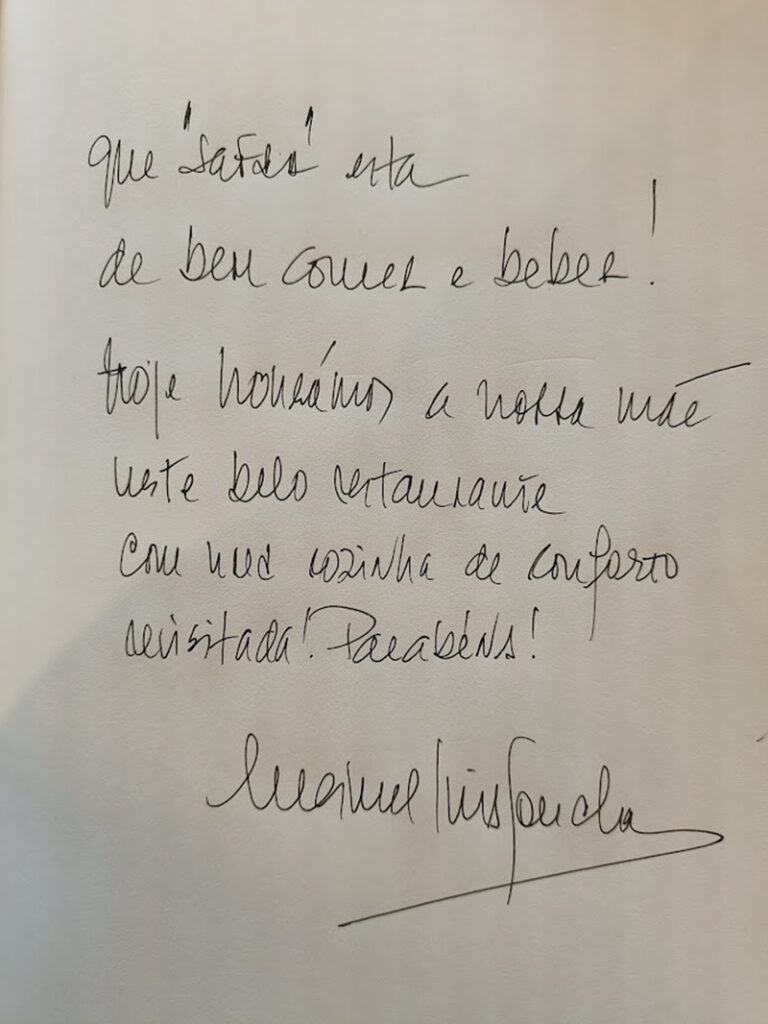 que "Safra" esta
de bem comer e beber!
Hoje honrámos a nossa mãe
neste belo restaurante
com uma cozinha de conforto
revisitada! Parabéns!
Manuel Luís Goucha